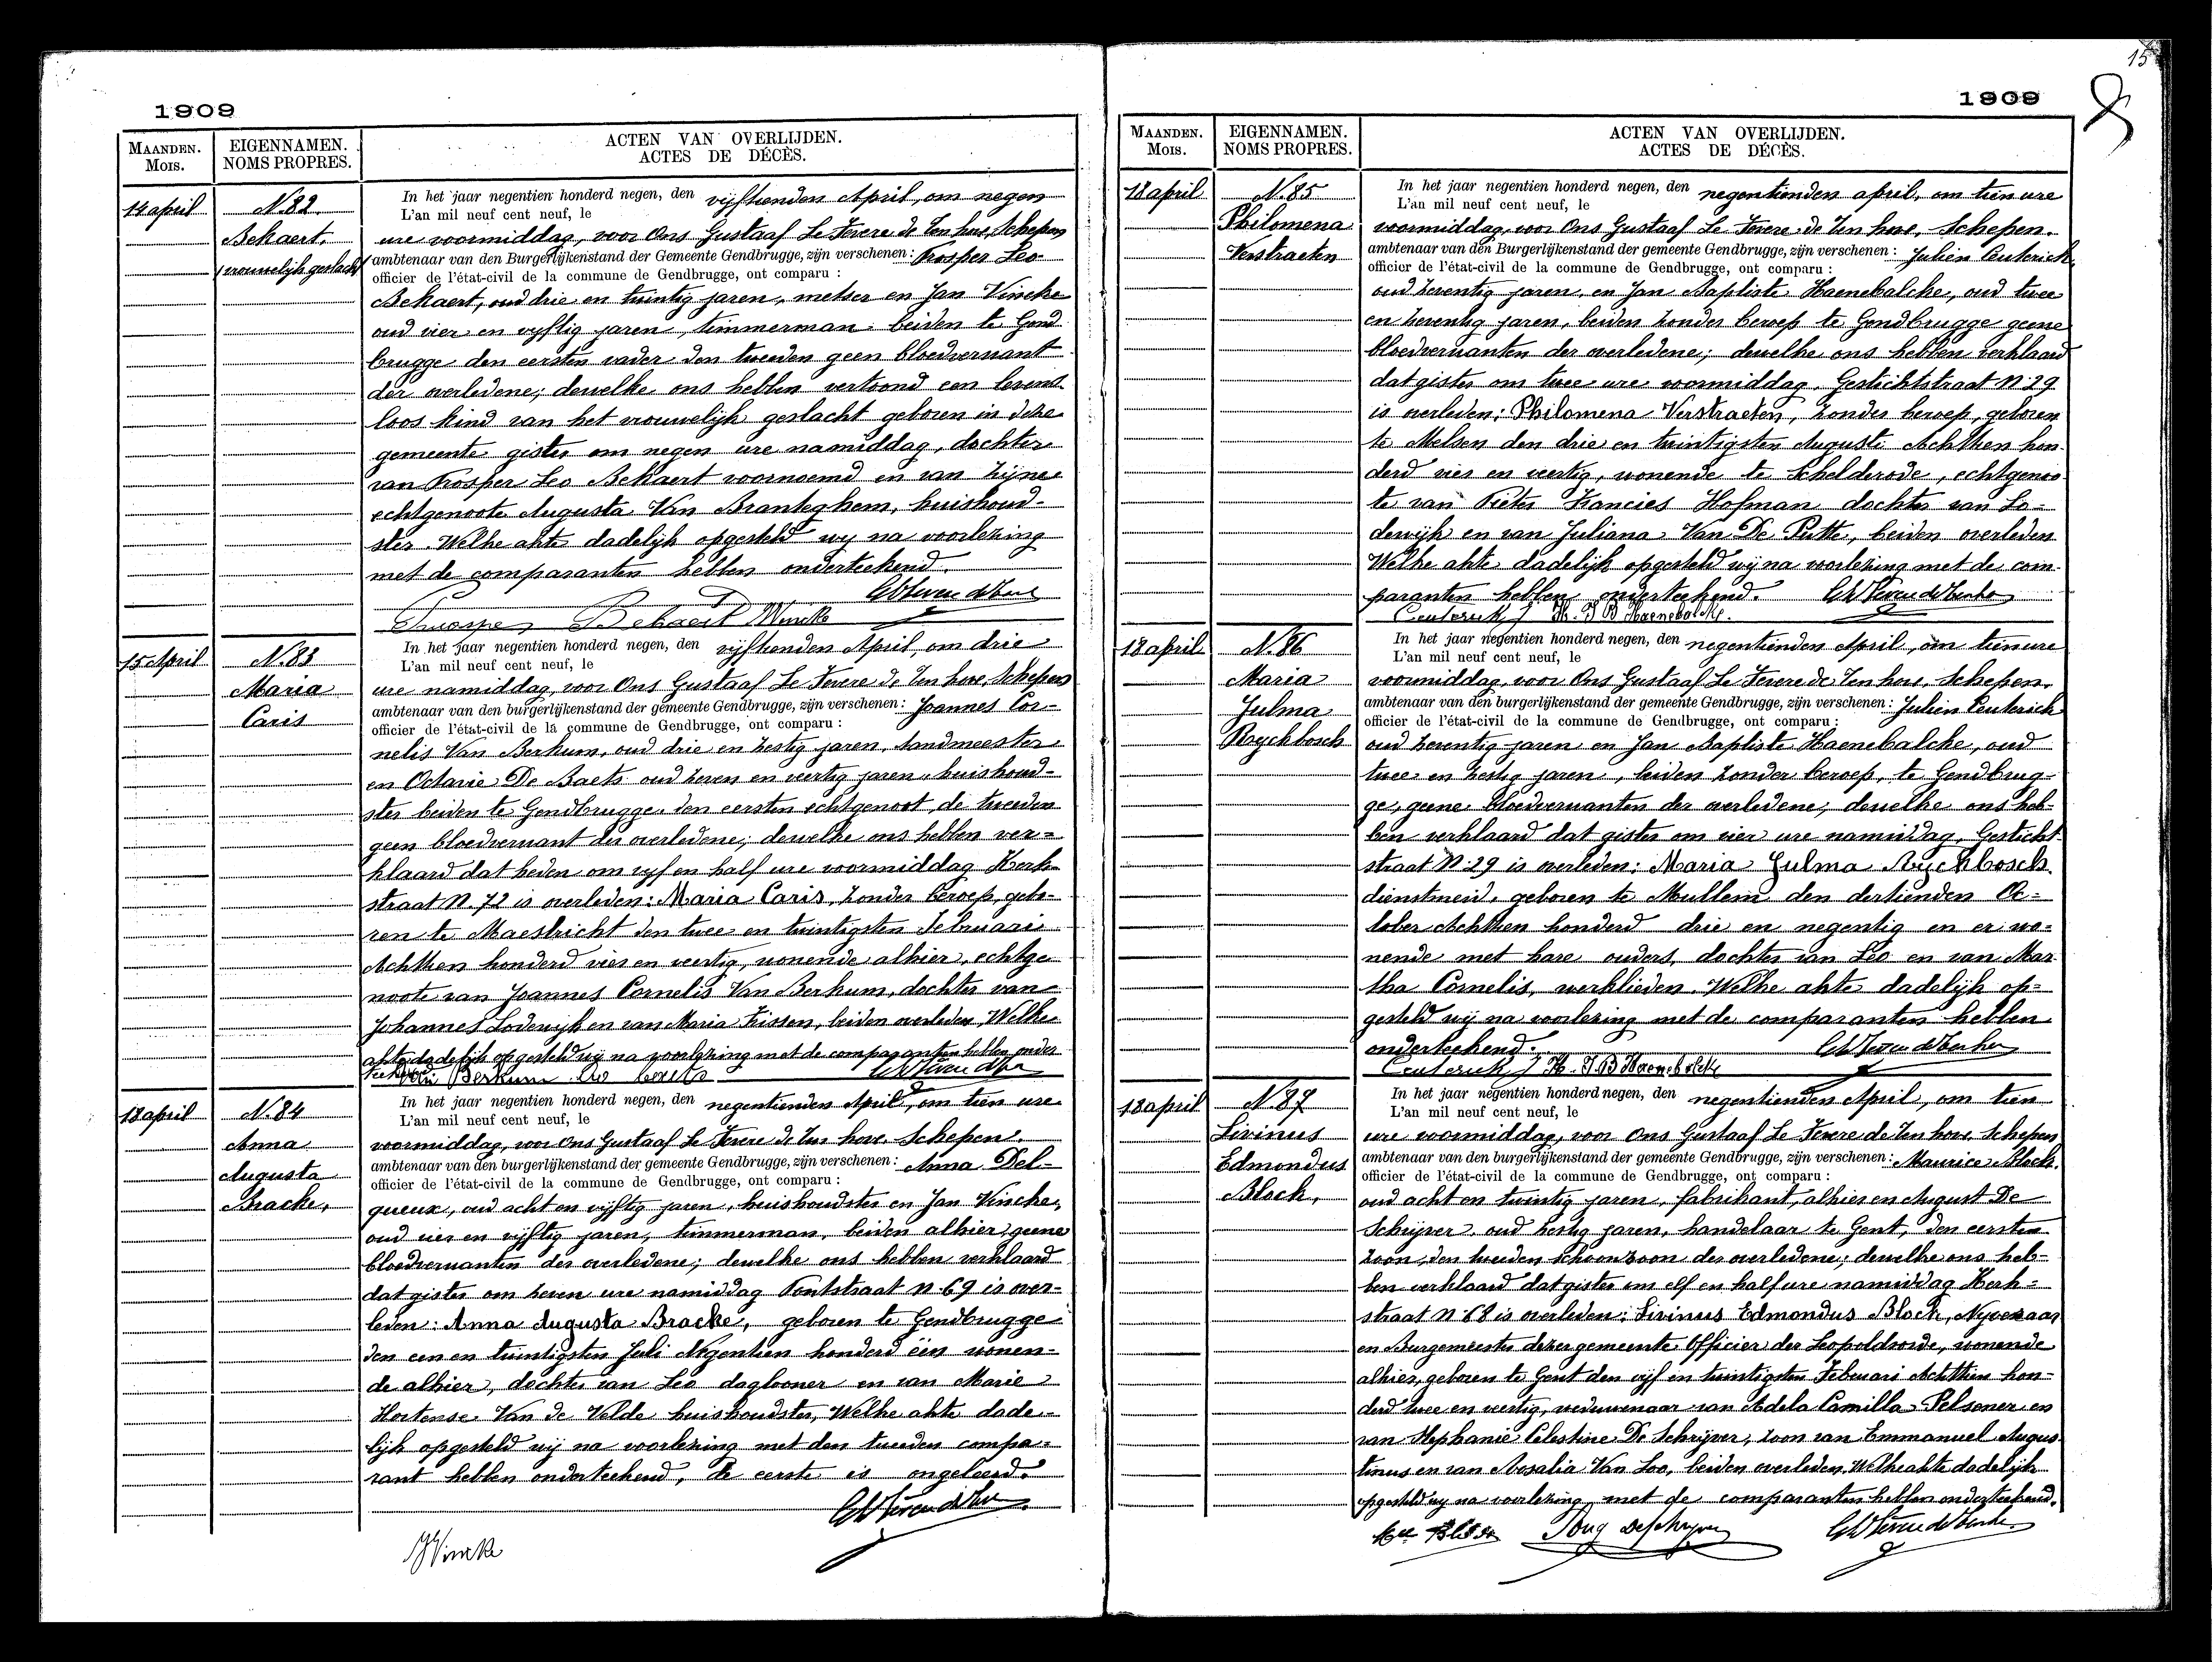 1909
MAANDEN.
Mois.
EIGENNAMEN.
NOMS PROPRES.
ACTEN VAN OVERLIJDEN.
ACTES DE DÉCÈS.
14 april
N. 82.
Bekaert,
vrouwelijk geslacht
In het jaar negentien honderd negen, den vijftienden April, om negen
L'an mil neuf cent neuf, le
ure voormiddag, voor Ons Gustaaf Le Fevere de Ten hove, Schepen
ambtenaar van den Burgerlijkenstand der Gemeente Gendbrugge, zijn verschenen: Prosper Leo
officier de l'état-civil de la commune de Gendbrugge, ont comparu :
Bekaert, oud drie en twintig jaren, metser en Jan Vincke
oud vier en vijftig jaren, timmerman beiden te Gend
brugge den eersten vader den tweeden geen bloedverwant
der overledene; dewelke ons hebben vertoond een levent
loos kind van het vrouwelijk geslacht geboren in deze
gemeente gister om negen ure namiddag, dochter
van Prosper Leo Bekaert voornoemd en van zijne
echtgenoote Augusta Van Branteghem, huishoud-
ster. Welke akte dadelijk opgesteld wij na voorlezing
met de comparanten hebben onderteekend.
Bekaert Vincke
15 April
N. 83
Maria
Caris
In het jaar negentien honderd negen, den vijftienden April, om drie
L'an mil neuf cent neuf, le
ure namiddag, voor Ons Gustaaf Le Fevere de Ten hove, Schepen
ambtenaar van den burgerlijkenstand der gemeente Gendbrugge, zijn verschenen: Joannes Cor-
officier de l'état-civil de la commune de Gendbrugge, ont comparu :
nelis Van Berkum, oud drie en zestig jaren, landmeester
en Octavie De Baets oud zeven en veertig jaren, huishoud-
ster beiden te Gendbrugge den eersten echtgenoot, de tweeden
geen bloedverwant der overledene; dewelke ons hebben ver-
klaard dat heden om vijf en half ure voormiddag Kerk-
straat N. 72 is overleden: Maria Caris, zonder beroep, gebo-
ren te Maestricht den twee en twintigsten Februari
Achttien honderd vier en veertig, wonende alhier, echtge
noote van Joannes Cornelis Van Berkum, dochter van
Johannes Lodewijk en van Maria Frissen, beiden overleden, Welke
akte dadelijk opgesteld wij na voorlezing met de comparanten hebben onder
teekend. Van Berkum
18 april
N. 84
Anna
Augusta
Bracke,
In het jaar negentien honderd negen, den negentienden April, om tien ure
L'an mil neuf cent neuf, le
voormiddag, voor ons Gustaaf Le Fevere de Ten hove, Schepen.
ambtenaar van den burgerlijkenstand der gemeente Gendbrugge, zijn verschenen: Anna Del-
officier de l'état-civil de la commune de Gendbrugge, ont comparu :
queux, oud acht en vijftig jaren, huishoudster en Jan Vincke,
oud vier en vijftig jaren, timmerman, beiden alhier, geene
bloedverwanten der overledene; dewelke ons hebben verklaard
dat gister om zeven ure namiddag Pontstraat N. 69 is over-
leden: Anna Augusta Bracke, geboren te Gendbrugge
den een en twintigsten Juli Negentien honderd een wonen-
de alhier, dochter van Leo daglooner en van Marie
Hortense Van de Velde huishoudster, Welke akte dade-
lijk opgesteld wij na voorlezing met den tweeden compa-
rant hebben onderteekend, de eerste is ongeleerd.
JVincke
15
1909
MAANDEN.
Mois.
EIGENNAMEN.
NOMS PROPRES.
ACTEN VAN OVERLIJDEN.
ACTES DE DÉCÈS.
18 april
N. 85
Philomena
Verstraeten
In het jaar negentien honderd negen, den negentienden april, om tien ure
L'an mil neuf cent neuf, le
voormiddag, voor Ons Gustaaf Le Fevere de Ten hove, Schepen.
ambtenaar van den Burgerlijkenstand der gemeente Gendbrugge, zijn verschenen: Julien Ceuterick
officier de l'état-civil de la commune de Gendbrugge, ont comparu :
oud zeventig jaren, en Jan Baptiste Haenebalcke, oud twee
en zeventig jaren, beiden zonder beroep te Gendbrugge geene
bloedverwanten der overledene; dewelke ons hebben verklaard
dat gister om twee ure voormiddag, Gestichtstraat N. 29
is overleden: Philomena Verstraeten, zonder beroep, geboren
te Melsen den drie en twintigsten Augusti Achttien hon-
derd vier en veertig, wonende te Schelderode, echtgenoo-
te van Pieter Francies Hofman dochter van Lo-
dewijk en van Juliana Van De Putte, beiden overleden
Welke akte dadelijk opgesteld wij na voorlezing met de com-
paranten hebben onderteekend.
Ceuterick J H. J B Haenebalcke.
18 april
N. 86
Maria
Julma
Ryckbosch
In het jaar negentien honderd negen, den negentienden April, om tien ure
L'an mil neuf cent neuf, le
voormiddag, voor Ons Gustaaf Le Fevere de Ten hove, Schepen.
ambtenaar van den burgerlijkenstand der gemeente Gendbrugge, zijn verschenen: Julien Ceuterick
officier de l'état-civil de la commune de Gendbrugge, ont comparu :
oud zeventig jaren en Jan Baptiste Haenebalcke, oud
twee en zestig jaren, beiden zonder beroep, te Gendbrug-
ge, geene bloedverwanten der overledene, dewelke ons heb-
ben verklaard dat gister om vier ure namiddag, Gesticht-
straat N. 29 is overleden: Maria Julma Ryckbosch,
dienstmeid, geboren te Mullem den dertienden Oc-
tober Achttien honderd drie en negentig en er wo-
nende met hare ouders, dochter van Leo en van Mar-
tha Cornelis, werklieden. Welke akte dadelijk op-
gesteld wij na voorlezing met de comparanten hebben
onderteekend.
Ceuterick J H. J.B Haenebalcke
18 april
N. 87
Livinus
Edmondus
Block,
In het jaar negentien honderd negen, den negentienden April, om tien
L'an mil neuf cent neuf, le
ure voormiddag, voor Ons Gustaaf Le Fevere de Ten hove, Schepen
ambtenaar van den burgerlijkenstand der gemeente Gendbrugge, zijn verschenen: Maurice Block,
officier de l'état-civil de la commune de Gendbrugge, ont comparu :
oud acht en twintig jaren, fabrikant, alhier en August De
Schrijver, oud zestig jaren, handelaar te Gent, den eersten
zoon, den tweeden schoonzoon der overledene; dewelke ons heb-
ben verklaard dat gister om elf en half ure namiddag Kerk-
straat N. 68 is overleden: Livinus Edmondus Block, Nyveraar
en Burgemeester dezer gemeente Officier der Leopoldsorde, wonende
alhier, geboren te Gent den vijf en twintigsten Februari Achttien hon-
derd twee en veertig, weduwenaar van Adela Camilla Pelsener en
van Stephanie Celestine De Schrijver, zoon van Emmanuel Augus-
tinus en van Rosalia Van Loo, beiden overleden. Welke akte dadelijk
opgesteld wij na voorlezing met de comparanten hebben onderteekend.